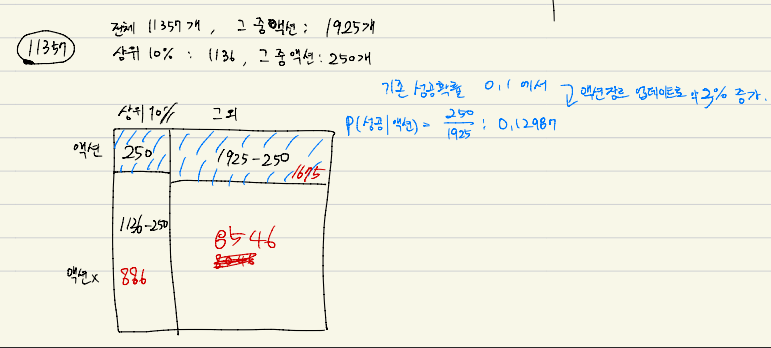 11357
전체 11357개, 그 중 액션 : 1925개
상위 10% : 1136, 그 중 액션 : 250개
기존 성공확률 0.1 에서
액션장르 업데이트로 약 3% 증가.
P(성공|액션) = 250/1925 : 0.12987
상위 10% 그 외
액션 250 1925-250
1675
1136-250
8546
액션x 886